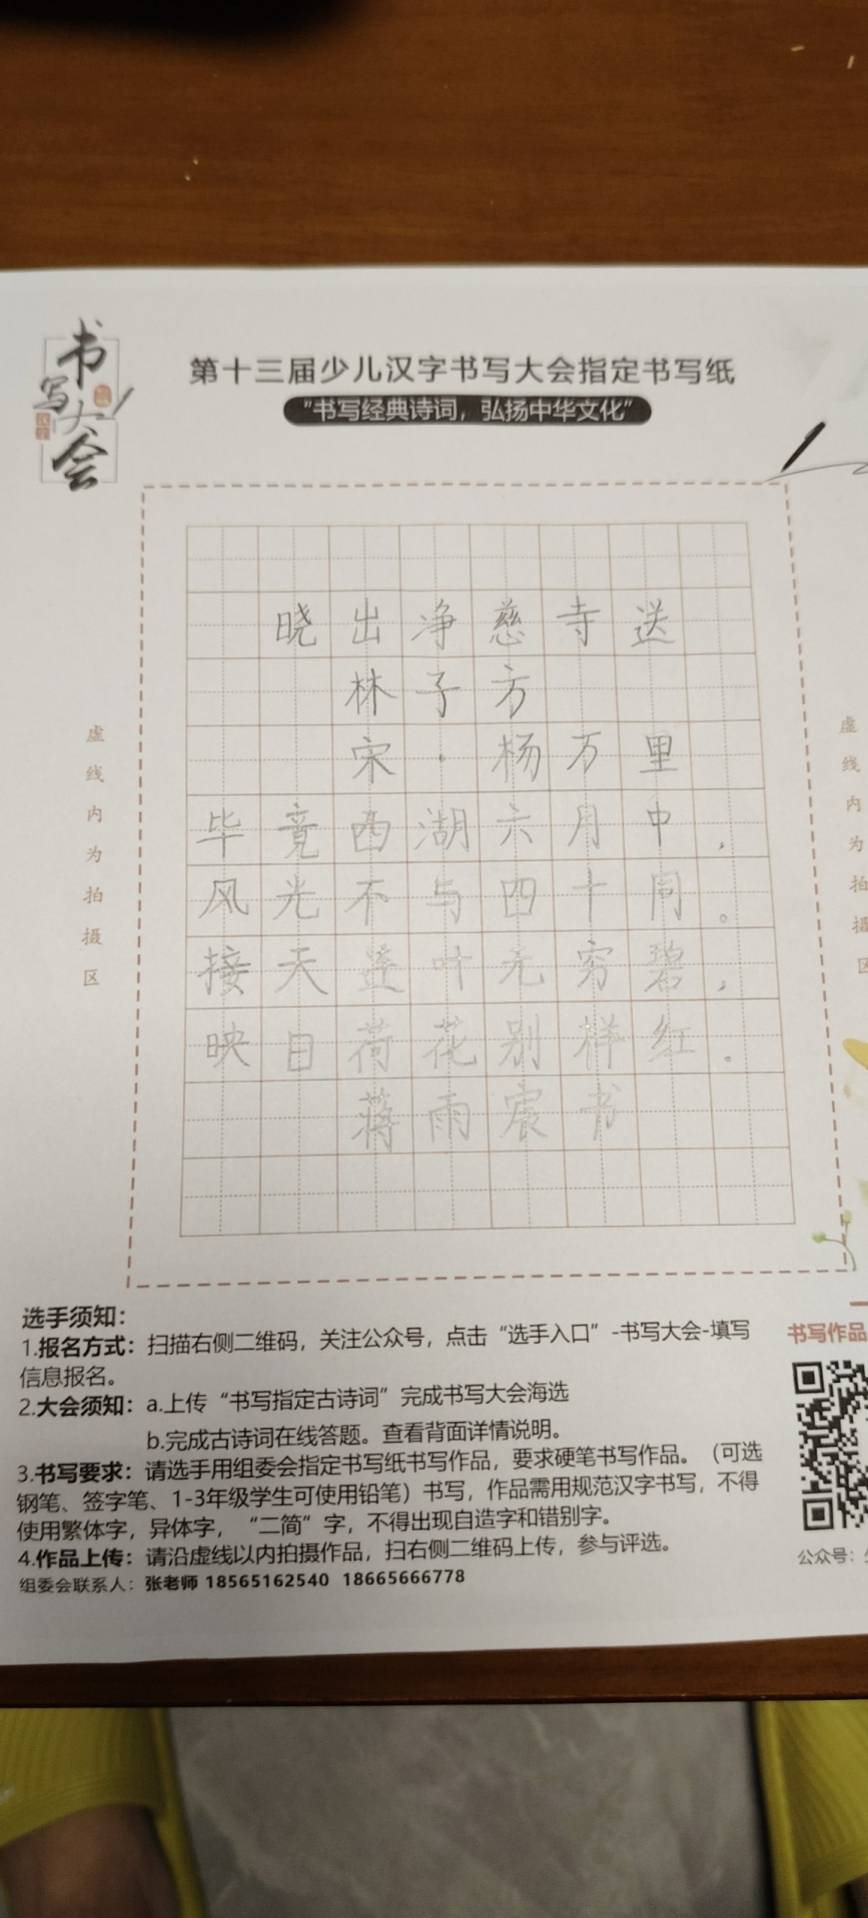 书写大会
第十三届少儿汉字书写大会指定书写纸
“书写经典诗词，弘扬中华文化”
晓出净慈寺送
林子方
宋·杨万里
毕竟西湖六月中，
风光不与四十同。
接天莲叶无穷碧，
映日荷花别样红。
蒋雨宸书
虚线内为拍摄区
虚线内为拍摄区
选手须知：
1.报名方式：扫描右侧二维码，关注公众号，点击“选手入口”-书写大会-填写
信息报名。
2.大会须知：a.上传“书写指定古诗词”完成书写大会海选
b.完成古诗词在线答题。查看背面详情说明。
3.书写要求：请选手用组委会指定书写纸书写作品，要求硬笔书写作品。（可选
钢笔、签字笔、1-3年级学生可使用铅笔）书写，作品需用规范汉字书写，不得
使用繁体字，异体字，“二简”字，不得出现自造字和错别字。
4.作品上传：请沿虚线以内拍摄作品，扫右侧二维码上传，参与评选。
组委会联系人：张老师 18565162540 18665666778
书写作品
公众号：